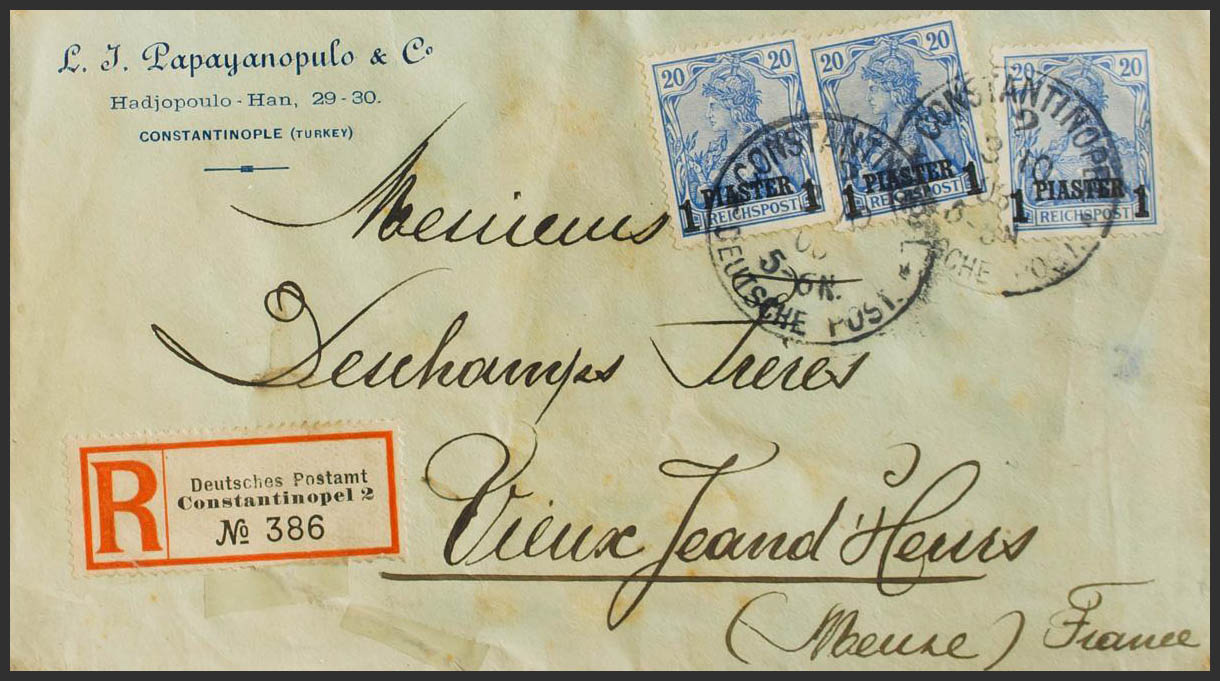 L. J. Papayanopulo & Co
Hadjopoulo - Han, 29 - 30.
CONSTANTINOPLE (TURKEY)
20 20
1 PIASTER 1
REICHSPOST
20 20
1 PIASTER 1
REICHSPOST
20 20
1 PIASTER 1
REICHSPOST
CONSTANTINOPEL
5-6N.
DEUTSCHE POST.
CONSTANTINOPEL 2
3 10
POST
Messieurs
Deschamps Freres
R
Deutsches Postamt
Constantinopel 2
№ 386
Vieux Jeand'Heurs
(Meuse) France